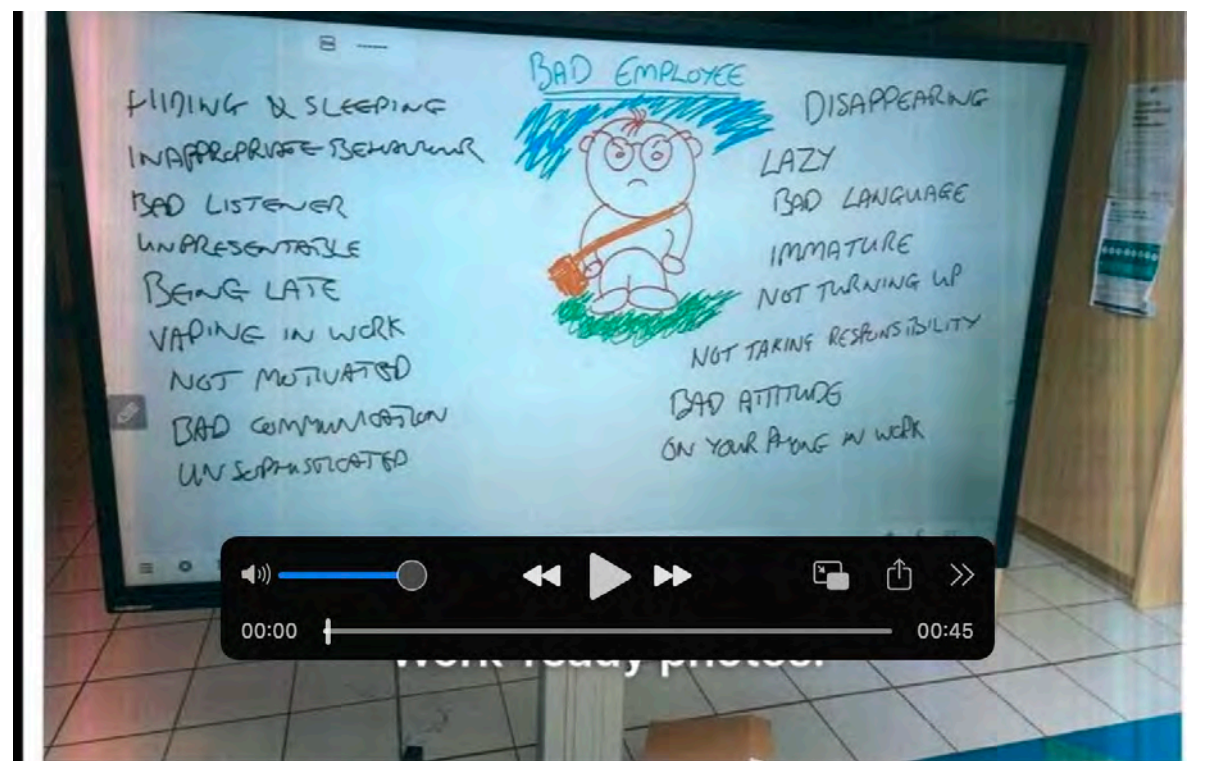 BAD EMPLOYEE
HIDING & SLEEPING
INAPPROPRIATE BEHAVIOUR
BAD LISTENER
UNPRESENTABLE
BEING LATE
VAPING IN WORK
NOT MOTIVATED
BAD COMMUNICATION
UNSOPHISTICATED
DISAPPEARING
LAZY
BAD LANGUAGE
IMMATURE
NOT TURNING UP
NOT TAKING RESPONSIBILITY
BAD ATTITUDE
ON YOUR PHONE IN WORK
00:00
00:45
Work ready photos.